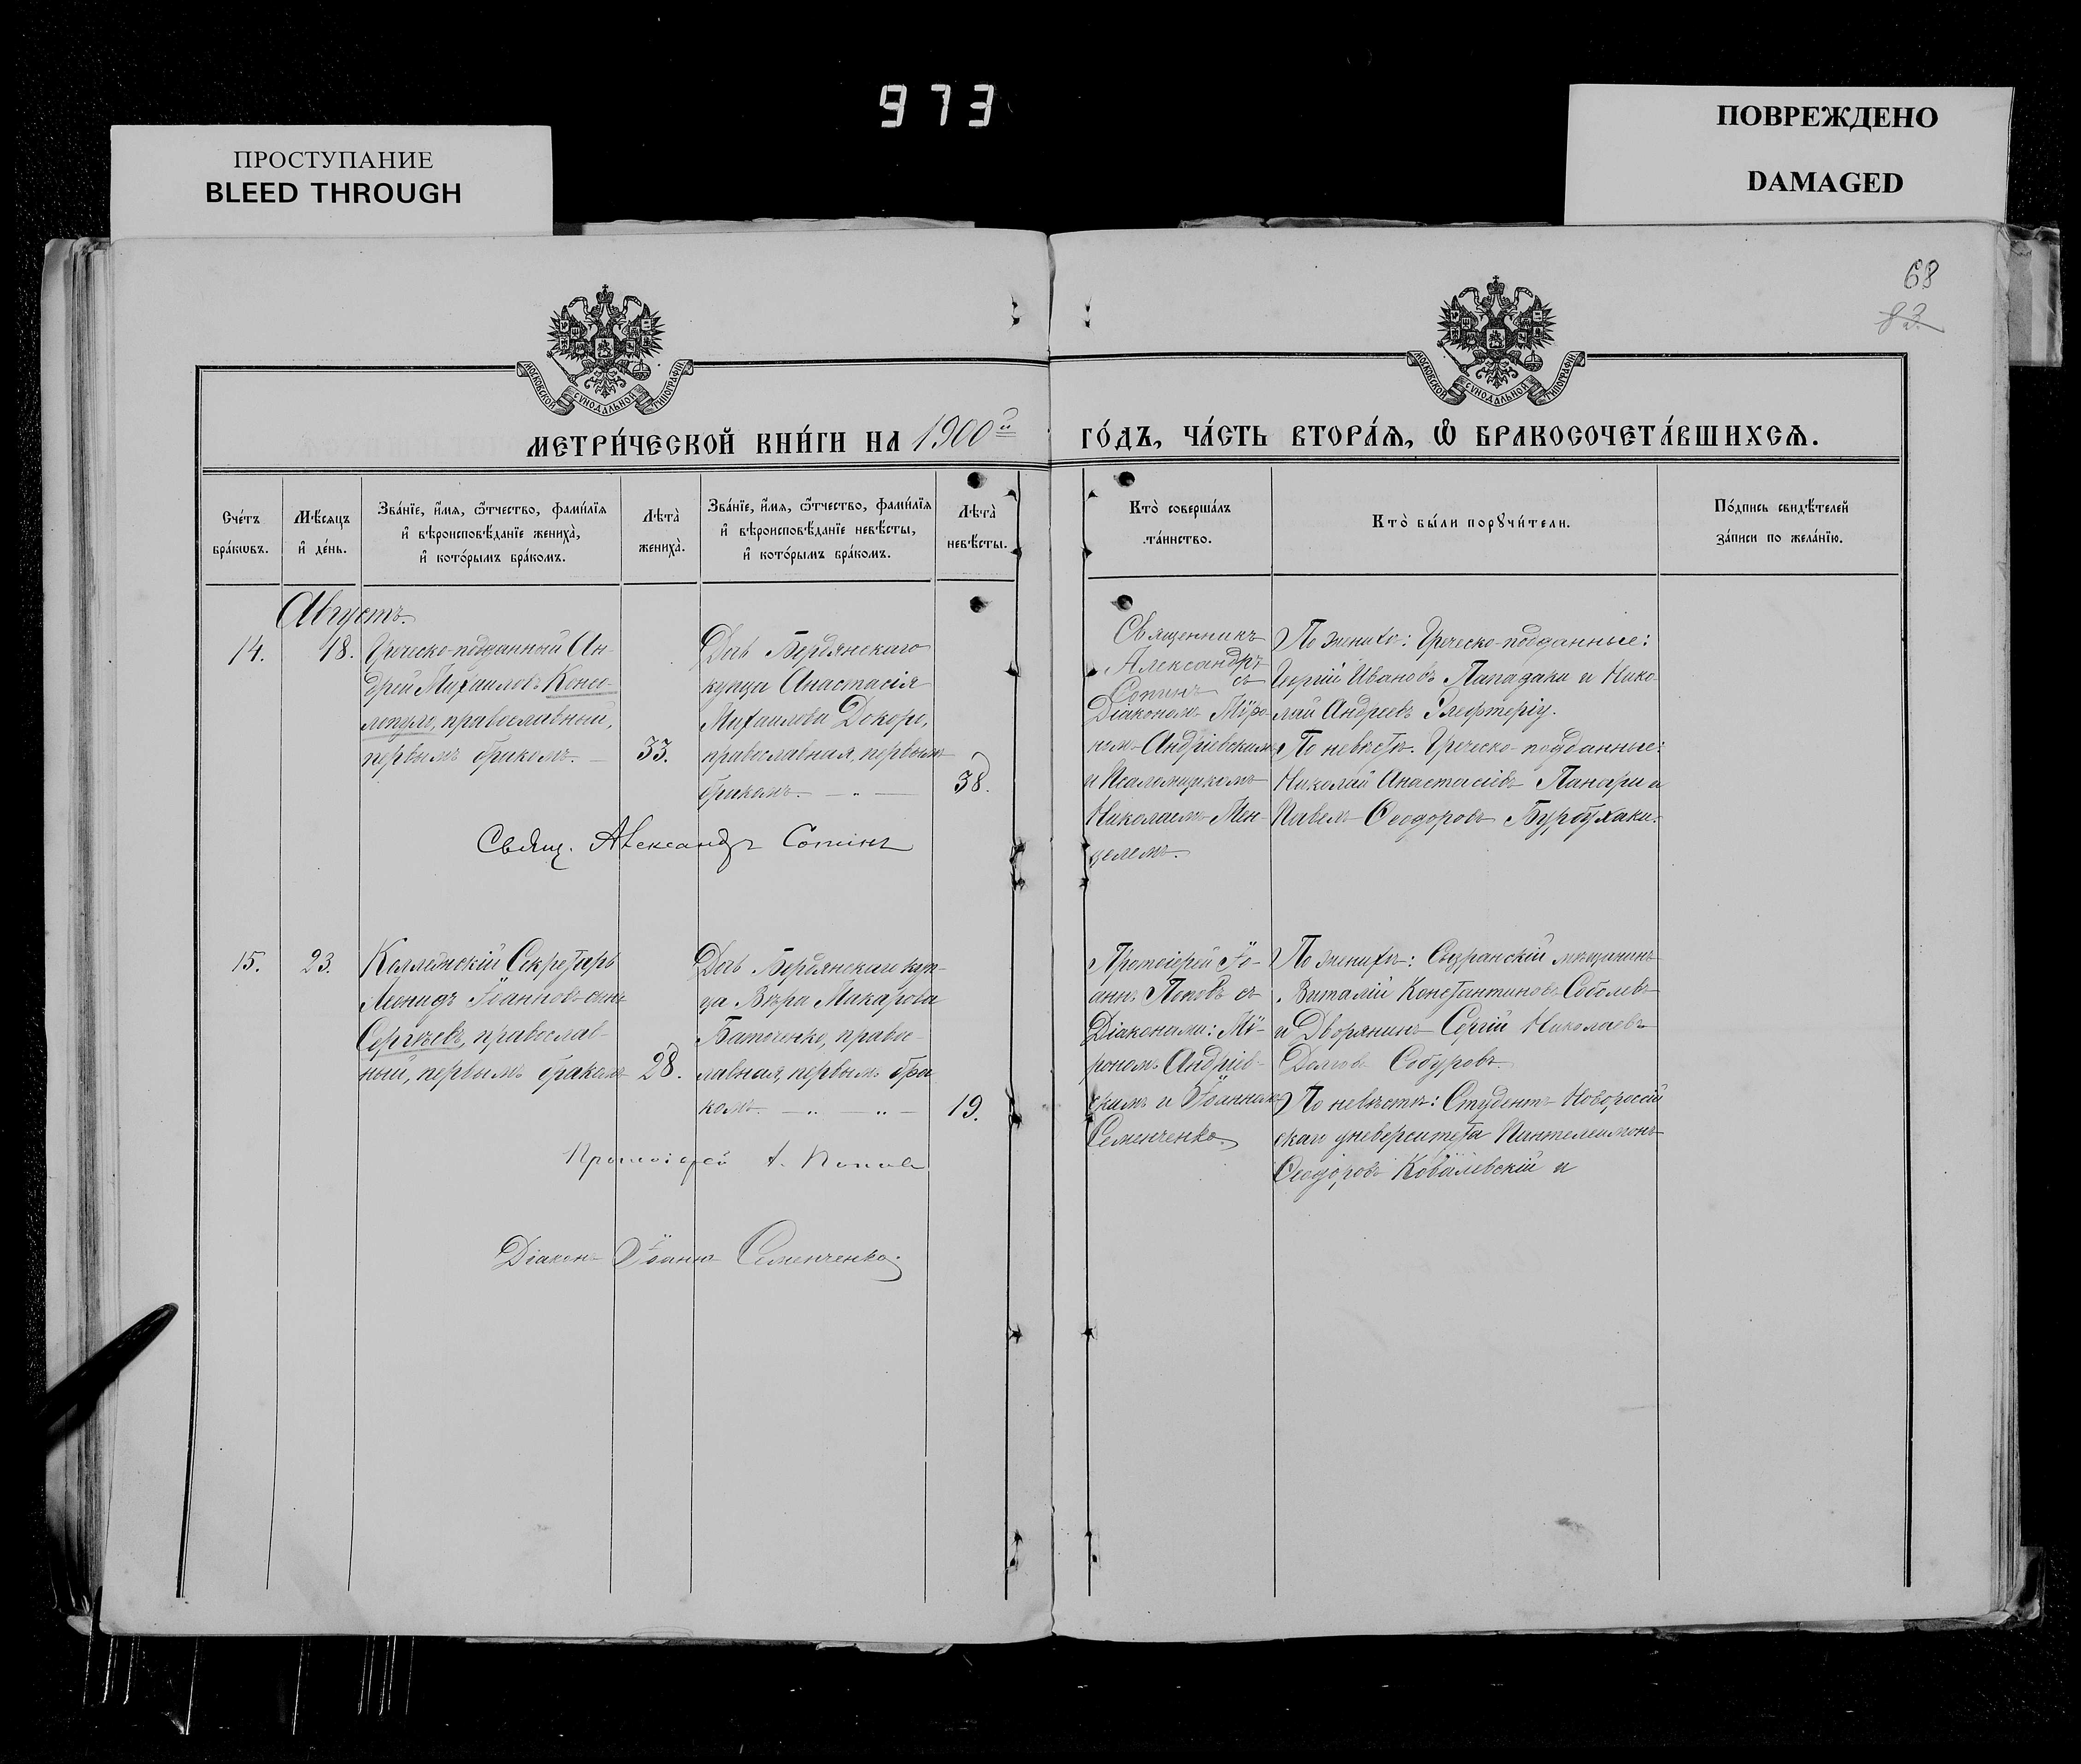 973
ПРОСТУПАНИЕ
BLEED THROUGH
ПОВРЕЖДЕНО
DAMAGED
68
83.
МОСКОВСКОЙ СѴНОДАЛЬНОЙ ТИПОГРАФІИ
МОСКОВСКОЙ СѴНОДАЛЬНОЙ ТИПОГРАФІИ
МЕТРИ́ЧЕСКОЙ КНИ́ГИ НА 1900й
ГО́ДЪ, ЧА́СТЬ ВТОРА́Ѧ, Ѽ БРАКОСОЧЕТА́ВШИХСѦ.
Сче́тъ
бра́кѡвъ.
Мѣ́сѧцъ
и҆ де́нь.
Зва́нїе, и҆́мѧ, ѻ҆́тчество, фами́лїѧ
и҆ вѣроисповѣ́данїе жениха̀,
и҆ кото́рымъ бра́комъ.
Лѣта̀
жениха̀.
Зва́нїе, и҆́мѧ, ѻ҆́тчество, фами́лїѧ
и҆ вѣроисповѣ́данїе невѣ́сты,
и҆ кото́рымъ бра́комъ.
Лѣта̀
невѣ́сты.
Кто̀ соверша́лъ
та́инство.
Кто̀ бы́ли порꙋчи́тели.
По́дпись свидѣ́телей
за́писи по жела́нїю.
Августъ.
14.
18.
Греческо-подданный Ан-
дрей Михаиловъ Консо-
лопуло, православный,
первымъ бракомъ. —
33.
Дочь Бердянскаго
купца Анастасія
Михаилова Докоро,
православная, первымъ
бракомъ. — „ —
38.
Священникъ
Александръ
Сопинъ съ
Діакономъ Мѵро-
номъ Андріевскимъ
и Псаломщикомъ
Николаемъ Мен-
целемъ.
По женихѣ: Греческо-подданные:
Георгій Ивановъ Пападаки и Нико-
лай Андреевъ Элефтеріу.
По невѣстѣ: Греческо-подданные:
Николай Анастасіевъ Панари и
Павелъ Ѳеодоровъ Бурбухаки.
Свящ. Александръ Сопинъ
15.
23.
Коллежскій Секретарь
Леонидъ Іоанновъ сынъ
Сергѣевъ, православ-
ный, первымъ бракомъ
28.
Дочь Бердянскаго куп-
ца Вѣра Макарова
Баточенко, правос-
лавная, первымъ бра-
комъ. — „ — „ —
19.
Протоіерей Іо-
аннъ Поповъ съ
Діаконами: Мѵ-
рономъ Андріев-
скимъ и Іоанномъ
Семенченко.
По женихѣ: Сызранскій мѣщанинъ
Виталій Константиновъ Соболевъ
и Дворянинъ Сергій Николаевъ
Долговъ Собуровъ.
По невѣстѣ: Студентъ Новороссій
скаго университета Пантелеимонъ
Ѳеодоровъ Ковалевскій и
Протоіерей І. Поповъ
Діаконъ Іоаннъ Семенченко.